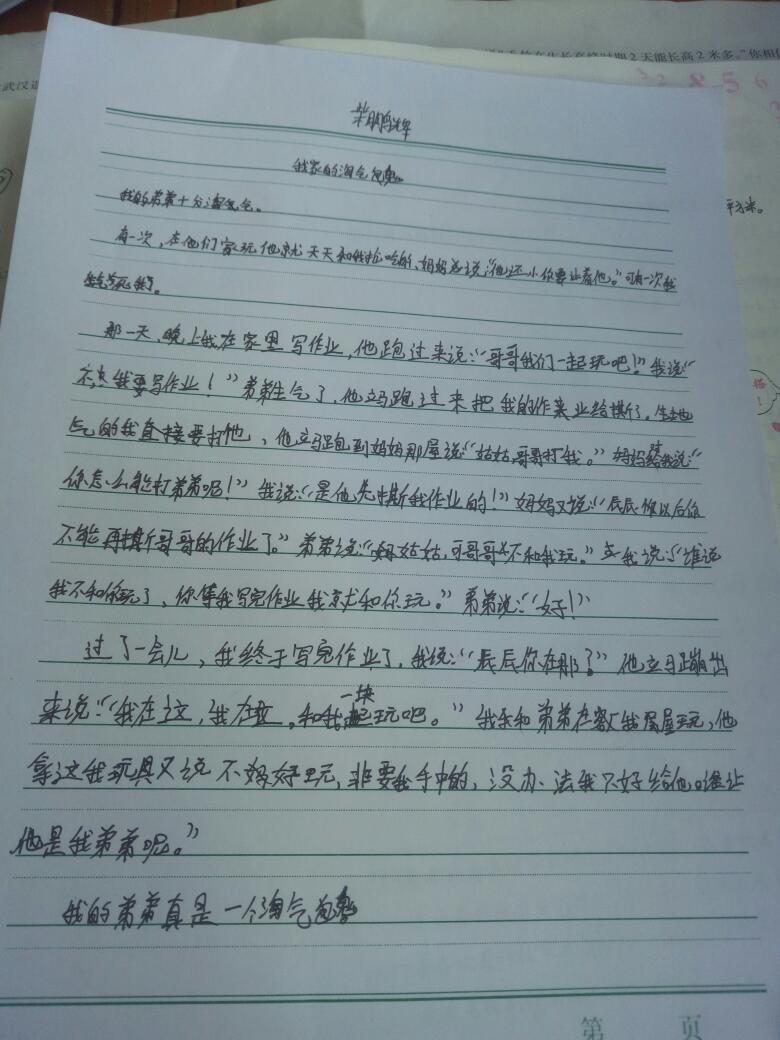 天能长高2米多。"你相信
武汉
3 2 8 5 6
平方米。
我家的淘气包
我的弟弟十分淘气。
有一次,在他们家玩他就天天和我抢吃的、妈妈总说:"他还小你要让着他。"可有一次我
气死我了。
那一天,晚上我在家里写作业,他跑过来说:"哥哥我们一起玩吧!"我说:"
不我要写作业!"弟弟生气了,他立马跑过来把我的作业给撕了,生
气的我直接要打他,他立马跑到妈妈那屋说:"姑姑,哥哥打我。"妈妈我说:"
你怎么能打弟弟呢!"我说:"是他先撕我作业的!"妈妈又说:"辰辰你以后你
不能再撕哥哥的作业了。"弟弟说:"姑姑,可哥哥不和我玩。"我说:"谁说
我不和你玩了,你等我写完作业我就和你玩。"弟弟说:"好!"
过了一会儿,我终于写完作业了,我说:"辰辰你在那?"他立马蹦出
来说:"我在这,我在这,和我一块玩吧。"我和弟弟在我屋玩,他
拿这我玩具又说不好玩,非要我手中的,没办法我只好给他。谁让
他是我弟弟呢。"
我的弟弟真是一个淘气包
第 页